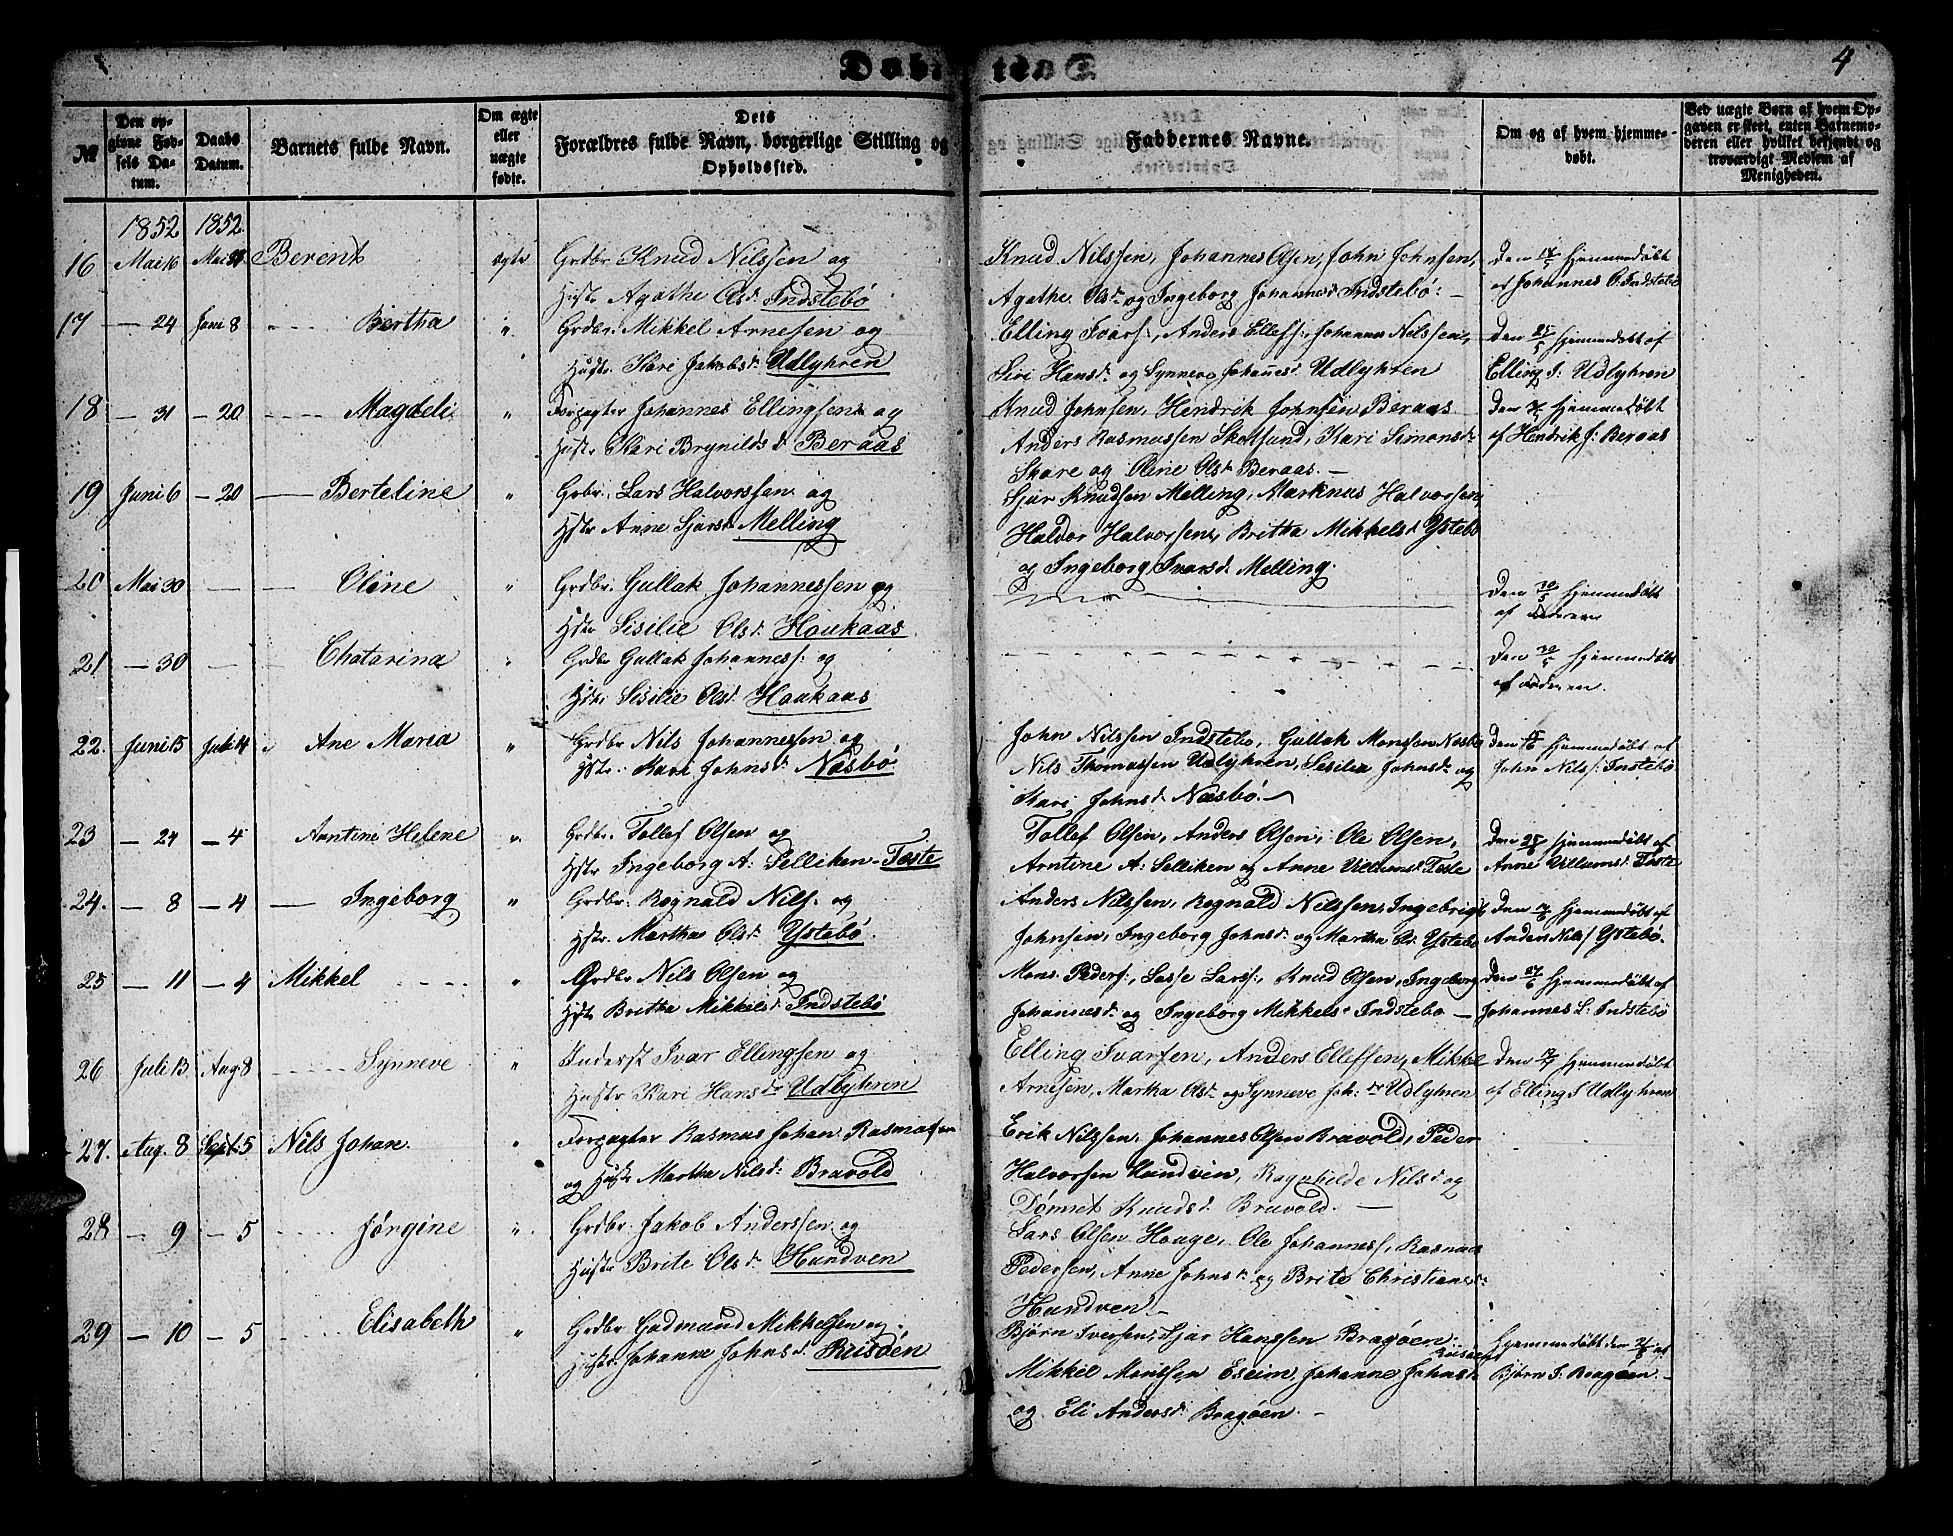 Døbte
4
№
Den opgivne Fødsels Datum.
Daabs Datum.
Barnets fulde Navn.
Om ægte eller uægte fødte.
Dets Forældres fulde Navn, borgerlige Stilling og Opholdssted.
Faddernes Navne.
Om og af hvem hjemmedøbt.
Ved uægte Børn af hvem Opgaven er skeet, enten Barnemoderen eller hvilket bekjendt og troværdigt Medlem af Menigheden.
1852 1852
16 Mai 16 Mai Berent ægte Grdbr. Knud Nilssen og
Hustr Agathe Olsd. Indstebö
Knud Nilssen, Johannes Olsen, John Johnsen,
Agathe Olsd. og Ingeborg Johannesd. Indstebö.
Den 17/5 hjemmedöbt
af Johannes O. Indstebö
17 — 24 Juni 8 Bertha " Grdbr. Mikkel Arnesen og
Hustr. Kari Jakobsd. Udlyhren
Elling Ivars:, Anders Ellefs:, Johannes Nilssen,
Siri Hansd. og Synneve Johanesd. Udlyhren
Den 25/5 hjemmedöbt af
Elling I: Udlyhren
18 — 31 — 20 Magdeli " Forpagter Johannes Ellingsen og
Hustr Kari Brynildsd. Beraas
Knud Johnsen, Hendrik Johnsen Beraas
Anders Rasmussen Skotsund, Kari Simonsd.
Skare og Oline Olsd. Beraas. —
Den hjemmedöbt
af Hendrik J: Beraas
19 Juni 6 — 20 Berteline " Grbr. Lars Halvorssen og
Hstr Anne Sjursd. Melling
Sjur Knudsen Melling, Markus Halvorsen,
Haldor Halvorsen, Britha Mikkelsd. Ystebö
og Ingeborg Ivarsd. Melling.
20 Mai 30 — Oline " Grdbr. Gullak Johannessen og
Hstr Sisilie Olsd. Haukaas
Den 30/5 hjemmedöbt
af
21 — 30 — Chatarina " Grdbr Gullak Johanness: og
Hstr Sisilie Olsd. Haukaas
Den 30/5 hjemmedöbt
af
22. Juni 15 Juli 4 Ane Maria " Grdbr Nils Johannessen og
Hstr. Kari Johnsd. Næsbö
John Nilssen Indstebö, Gullak Monssen Næsbö
Nils Thomassen Udlyhren, Sesilia Johnsd. og
Kari Johnsd. Næsbö. —
Den hjemmedöbt af
John Nils: Instebö
23 — 24 — 4 Arntine Helene " Grdbr. Tollef Olsen og
Hstr Ingeborg A: Selliken-Toste
Tollef Olsen, Anders Olsen, Ole Olsen,
Arntine A: Selliken og Anne Villumsd. Toste
Den 25/6 hjemmedöbt af
Anne Villumsd. Toste
24. — 8 — 4 Ingeborg " Grdbr. Rognald Nils: og
Hstr. Martha Olsd. Ystebö.
Anders Nilssen, Rognald Nilssen, Ingebrigt
Johnsen, Ingeborg Johnsd. og Martha Olsd Ystebö
Den hjemmedöbt af
Anders Nils: Ystebö.
25 — 11 — 4 Mikkel " Grdbr Nils Olsen og
Hstr Britha Mikkelsd. Indstebö
Mons Peders:, Lasse Lars:, Knud Olsen, Ingeborg
Johannesd. og Ingeborg Mikkelsd. Indstebö —
Den hjemmedöbt af
Johannes L: Indstebö
26 Juli 13 Aug 8 Synneve " Inderst Ivar Ellingsen og
Hustr Kari Hansdr Udlyhren
Elling Ivarsen, Anders Ellefsen, Mikkel
Arnesen, Martha Olsd. og Synneve Joh: dr Udlyhren
Den hjemmedöbt
af Elling I Udlyhren
27. Aug. 8 Sept. 5 Nils Johan. " Forpagter Rasmus Johan Rasmussen
og Hustr Martha Nilsd. Bravold
Erik Nilssen, Johannes Olsen Bravold, Peder
Halvorsen Hundven, Ragnhilde Nilsd. og
Dönnet Knudsd. Bravold. —
28 — 9 — 5 Jörgine " Grdbr. Jakob Anderssen og
Hustr Brite Olsd. Hundven
Lars Olsen Hauge, Ole Johanness, Rasmus
Pedersen, Anne Johnsd. og Brite Christiansd.
Hundven. —
29 — 10 — 5 Elisabeth " Grdbr Gudmund Mikkelsen og
Hustr. Johanne Johnsd. Riisöen
Björn Iversen, Sjur Hanssen Bragöen.
Mikkel Monssen Eseim, Johanne Johnsd. Riisöen
og Eli Andersd. Bragöen. —
Hjemmedöbt den af
Björn I: Bragöen. —